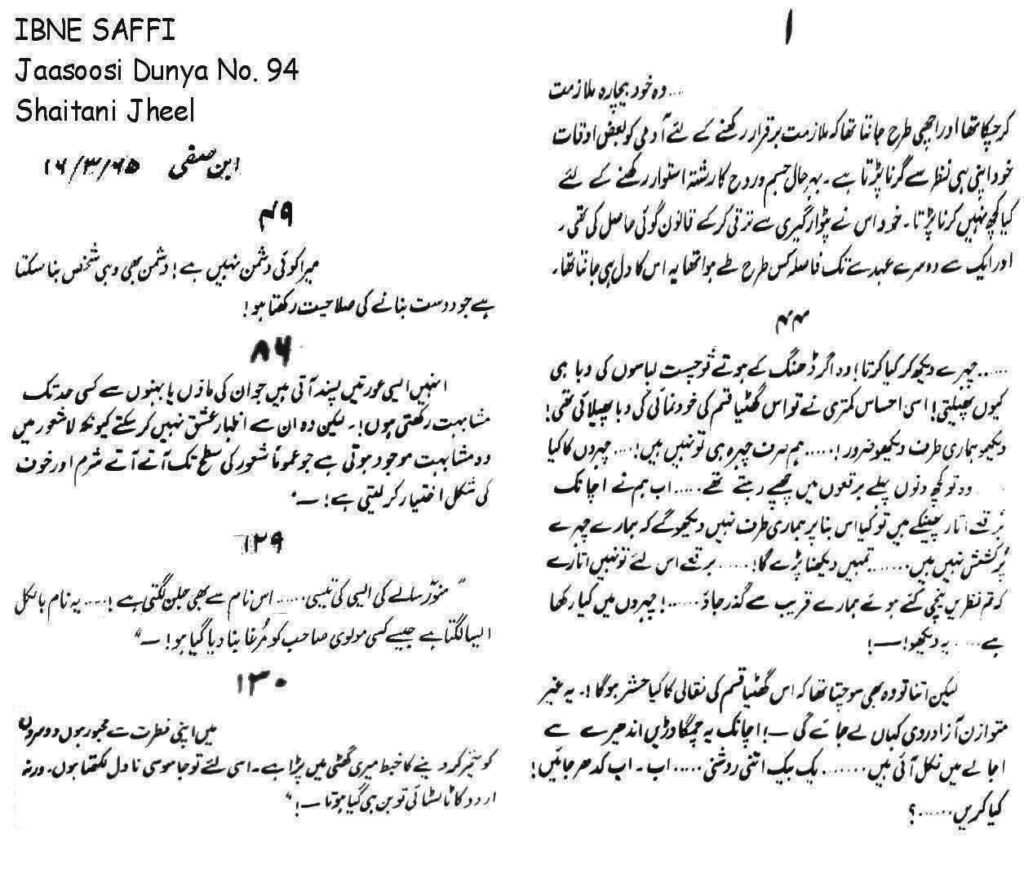 IBNE SAFFI
Jaasoosi Dunya No. 94
Shaitani Jheel
ابن صفی ۱۶/۳/۶۵
۱
..... وہ خود بیچارہ ملازمت
کر چکا تھا اور اچھی طرح جانتا تھا کہ ملازمت برقرار رکھنے کے لئے آدمی کو بعض اوقات
خود اپنی ہی نظر سے گرنا پڑتا ہے ۔ بہر حال جسم و روح کا رشتہ استوار رکھنے کے لئے
کیا کچھ نہیں کرنا پڑتا ۔ خود اس نے پٹوار گیری سے ترقی کر کے قانون گوئی حاصل کی تھی ،
اور ایک سے دوسرے عہدے تک فاصلہ کس طرح طے ہوا تھا یہ اس کا دل ہی جانتا تھا ۔
۴۴
..... چہرے دیکھ کر کیا کرتا ! وہ اگر ڈھنگ کے ہوتے تو چست لباسوں کی وبا ہی
کیوں پھیلتی ! اسی احساس کمتری نے تو اس گھٹیا قسم کی خود نمائی کی وبا پھیلائی تھی !
دیکھو ہماری طرف دیکھو ضرور ! ..... ہم صرف چہرہ ہی تو نہیں ہیں ! .... چہروں کا کیا
وہ تو کچھ دنوں پہلے برقعوں میں چھپے رہتے تھے ..... اب ہم نے اچانک
بُرقعے اتار پھینکے ہیں تو کیا اس بنا پر ہماری طرف نہیں دیکھو گے کہ ہمارے چہرے
پُرکشش نہیں ہیں ....... تمہیں دیکھنا پڑے گا ! ...... برقعے اس لئے تو نہیں اتارے
کہ تم نظریں نیچی کئے ہوئے ہمارے قریب سے گذر جاؤ ...... ! چہروں میں کیا رکھا
ہے ..... یہ دیکھو ! — !
لیکن اتنا تو وہ بھی سوچتا تھا کہ اس گھٹیا قسم کی نقالی کا کیا حشر ہوگا ! ۔ یہ غیر
متوازن آزاد روی کہاں لے جائے گی — ! اچانک یہ چمگادڑیں اندھیرے سے
اجالے میں نکل آئی ہیں ........ یک بیک اتنی روشنی ..... اب ۔ اب کدھر جائیں !
کیا کریں ...... ؟
۴۹
میرا کوئی دشمن نہیں ہے ! دشمن بھی وہی شخص بنا سکتا
ہے جو دوست بنانے کی صلاحیت رکھتا ہو !
۸۶
انہیں ایسی عورتیں پسند آتی ہیں جو ان کی ماؤں یا بہنوں سے کسی حد تک
مشابہت رکھتی ہوں ! ۔ لیکن وہ ان سے اظہار عشق نہیں کر سکتے کیونکہ لاشعور میں
وہ مشابہت موجود ہوتی ہے جو عموماً شعور کی سطح تک آتے آتے شرم اور خوف
کی شکل اختیار کر لیتی ہے ! — "
۱۲۹
" منور سالے کی ایسی کی تیسی ..... اس نام سے بھی جلن لگتی ہے ! .... یہ نام بالکل
ایسا لگتا ہے جیسے کسی مولوی صاحب کو مُرغا بنا دیا گیا ہو ! — "
۱۳۰
میں اپنی فطرت سے مجبور ہوں دوسروں
کو متحیر کر دینے کا خبط میری گھٹی میں پڑا ہے ۔ اسی لئے تو جاسوسی ناول لکھتا ہوں ۔ ورنہ
اردو کا ٹالسٹائی تو بن ہی گیا ہوتا — ! "